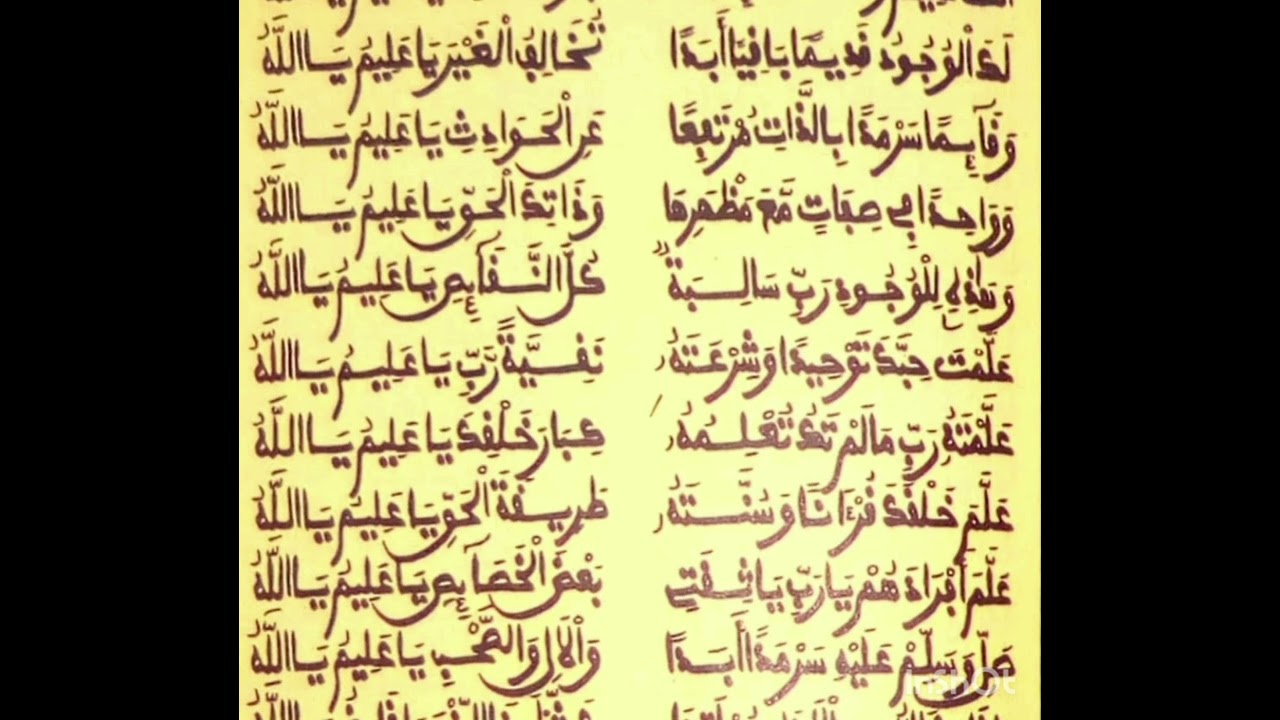 لَكَ الْوُجُودُ قَدِيمًا بَاقِيًا أَبَدًا تُخَالِفُ الْغَيْرَ يَا عَلِيمُ يَا اللَّهُ
وَقَآئِمًا سَرْمَدًا بِالذَّاتِ مُرْتَفِعًا عَنِ الْحَوَادِثِ يَا عَلِيمُ يَا اللَّهُ
وَوَاحِدًا فِي صِفَاتٍ مَّعَ مَظْهَرِهَا وَذَاتِكَ الْحَقِّ يَا عَلِيمُ يَا اللَّهُ
وَهَٰذِهِ لِلْوُجُودِ رَبِّ سَالِبَةٌ كُلَّ النَّقَآئِصِ يَا عَلِيمُ يَا اللَّهُ
عَلَّمْتَ حِبَّكَ تَوْحِيدًا وَشِرْعَتَهُ نَفْسِيَّةً رَبِّ يَا عَلِيمُ يَا اللَّهُ
عَلَّمْتَهُ رَبِّ مَا لَمْ تَكُ تُعْلِمُهُ كِبَارَ خَلْقِكَ يَا عَلِيمُ يَا اللَّهُ
عَلَّمَ خَلْقَكَ قُرْءَانًا وَسُنَّتَهُ طَرِيقَةَ الْحَقِّ يَا عَلِيمُ يَا اللَّهُ
عَلَّمَ أَفْرَادَهُمْ يَا رَبِّ يَا ثِقَتِي بَعْضَ الْخَصَآئِصِ يَا عَلِيمُ يَا اللَّهُ
صَلِّ وَسَلِّمْ عَلَيْهِ سَرْمَدًا أَبَدًا وَالْآلِ وَالصَّحْبِ يَا عَلِيمُ يَا اللَّهُ
InShOt